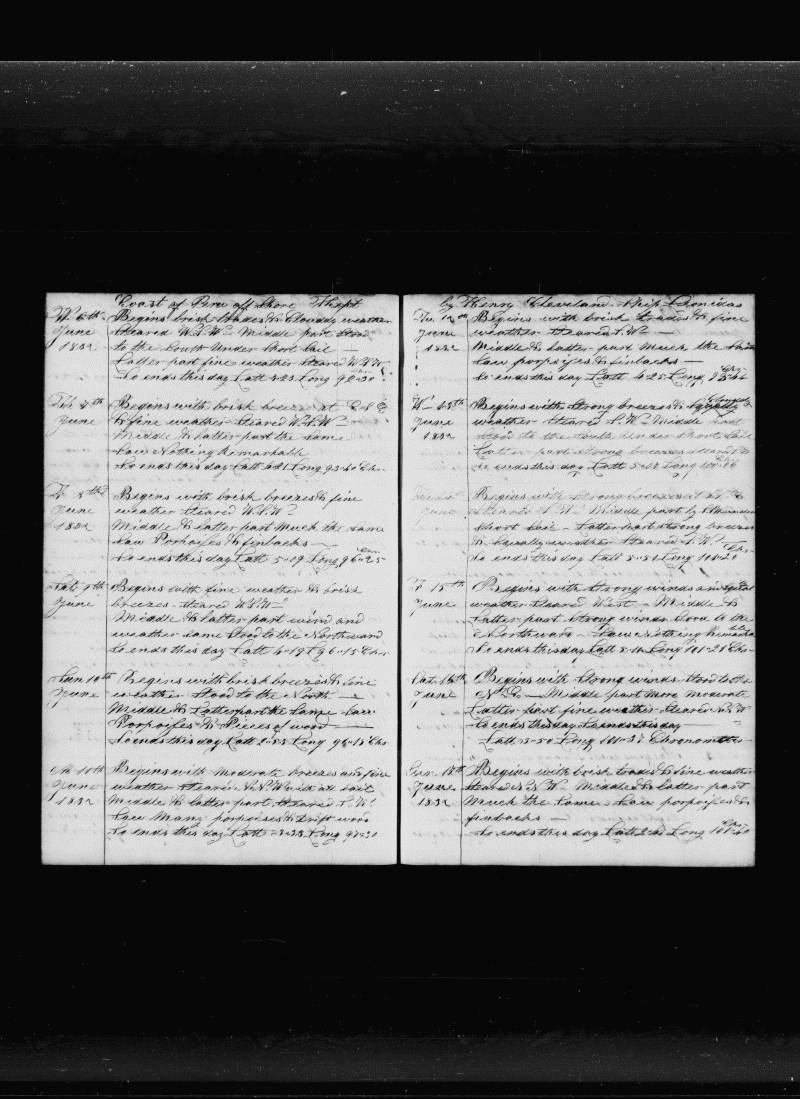 Coast of Peru off Shore Kept
W. 6th Begins brisk trades & Cloudy weather
June Steared W.S.W. Middle part Stood
1832 to the South Under Short Sail
Latter part fine weather Steared W.S.W
So ends this day Latt 3-23 Long 92-30
Th. 7th Begins with brisk breezes at E.S.E
June & fine weather Steared W.S.W
Middle & latter part the same
Saw Nothing Remarkable
So ends this day Latt Long 93-40 Chr.
F. 8th Begins with brisk breezes & fine
June weather Steared W.S.W
1832 Middle & latter part Much the same
Saw Porpoises & finbacks
So ends this day Latt 5-09 Long 96-25 Chr.
Sat. 9th Begins with fine weather & brisk
June breezes Steared W.S.W
Middle & latter part wind and
weather same Stood to the Northward
So ends this day Latt 4-19 Lg 96-15 Chr.
Sun 10th Begins with brisk breezes & fine
June weather Stood to the North
Middle & Latter part the Same Saw
Porpoises & Pieces of wood
So ends this day Latt Long 96-15 Chr.
M. 11th Begins with moderate breezes and fine
June weather Steared N.N.W with all sail
1832 Middle & latter part Steared S.W.
Saw Many porpoises & drift wood
So ends this day Latt Long
by Henry Cleveland Ship Leonidas
Tu. 12th Begins with brisk trades & fine
June weather Steared S.W.
1832 Middle & latter part Much the Same
Saw porpoises & finbacks
So ends this day Latt 4-25 Long Chr.
W 13th Begins with Strong breezes & Squally Cloudy
June weather Steared S.W. Middle part
1832 Stood to the South Under Short Sail
Latter part Strong breezes Steared
So ends this day Latt Long
Begins with Strong breezes at
June Steared S.W. Middle part
Short Sail Latter part Strong breezes
& Squally weather Steared S.W.
So ends this day Latt Long Chr.
F 15th Begins with Strong winds and
June weather Steared West Middle &
Latter part Strong winds Stood to the
Northward Saw Nothing Remarkable
So ends this day Latt Long 101-28 Chr.
Sat. 16th Begins with Strong winds Stood to the
June Middle part More Moderate
Latter part fine weather Steared
So ends this day So ends this day
Latt 3-50 Long Chronometer
Begins with brisk trades & fine weather
June Steared Middle & latter part
1832 Much the Same Saw porpoises &
finbacks
So ends this day Latt Long Chr.